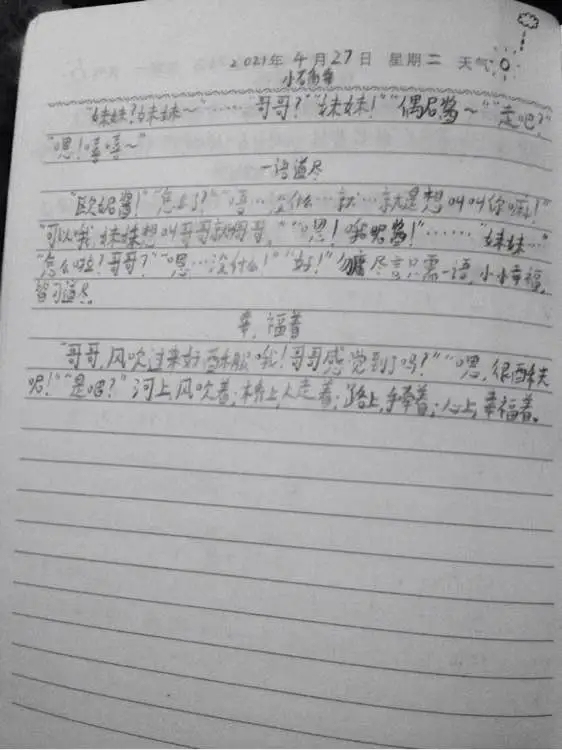 2021年 4月27日 星期二 天气
小石榴
"妹妹?妹妹~"……哥哥?""妹妹!""偶尼酱~""走吧?"
"嗯!嘻嘻~"
一语道尽
"欧妮酱!""怎么了?""嘻…没什么…就…就是想叫叫你嘛!"
"可以哦,妹妹想叫哥哥就叫哥哥。""嗯!哦呢酱!"……"妹妹…"
"怎么啦?哥哥?""嗯…没什么!""好!"尽言只需一语,小小幸福,
皆可道尽。
幸,福着
"哥哥,风吹过来好舒服哦!哥哥感觉到了吗?""嗯,很舒服
呢!""是吧?"河上,风吹着;桥上,人走着;路上,手牵着;心上,幸福着。